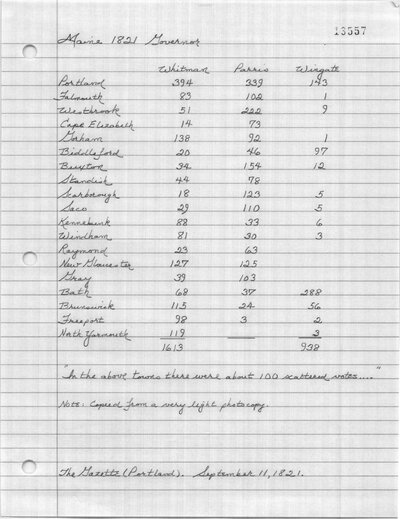 13557
Maine 1821 Governor
Whitman Parris Wingate
Portland 394 339 143
Falmouth 83 102 1
Westbrook 51 222 9
Cape Elizabeth 14 73
Gorham 138 92 1
Biddeford 20 46 97
Buxton 34 154 12
Standish 44 78
Scarborough 18 123 5
Saco 29 110 5
Kennebunk 88 33 6
Windham 81 30 3
Raymond 23 63
New Gloucester 127 125
Gray 39 103
Bath 68 37 288
Brunswick 115 24 56
Freeport 98 3 2
North Yarmouth 119 3
1613 938
"In the above towns there were about 100 scattered votes...."
Note: Copied from a very light photocopy.
The Gazette (Portland). September 11, 1821.